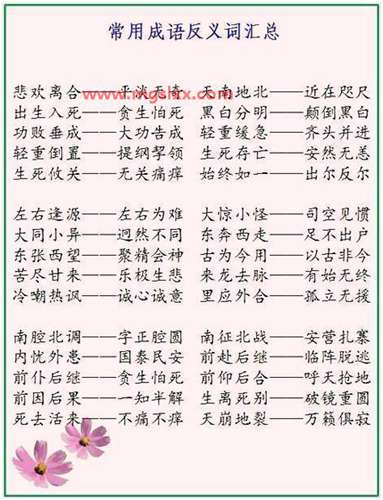 常用成语反义词汇总
悲欢离合——平淡无奇 天南地北——近在咫尺
www.mgshx.com
出生入死——贪生怕死 黑白分明——颠倒黑白
功败垂成——大功告成 轻重缓急——齐头并进
轻重倒置——提纲挈领 生死存亡——安然无恙
生死攸关——无关痛痒 始终如一——出尔反尔
左右逢源——左右为难 大惊小怪——司空见惯
大同小异——迥然不同 东奔西走——足不出户
东张西望——聚精会神 古为今用——以古非今
苦尽甘来——乐极生悲 来龙去脉——有始无终
冷嘲热讽——诚心诚意 里应外合——孤立无援
南腔北调——字正腔圆 南征北战——安营扎寨
内忧外患——国泰民安 前赴后继——临阵脱逃
前仆后继——贪生怕死 前仰后合——呼天抢地
前因后果——一知半解 生离死别——破镜重圆
死去活来——不痛不痒 天崩地裂——万籁俱寂